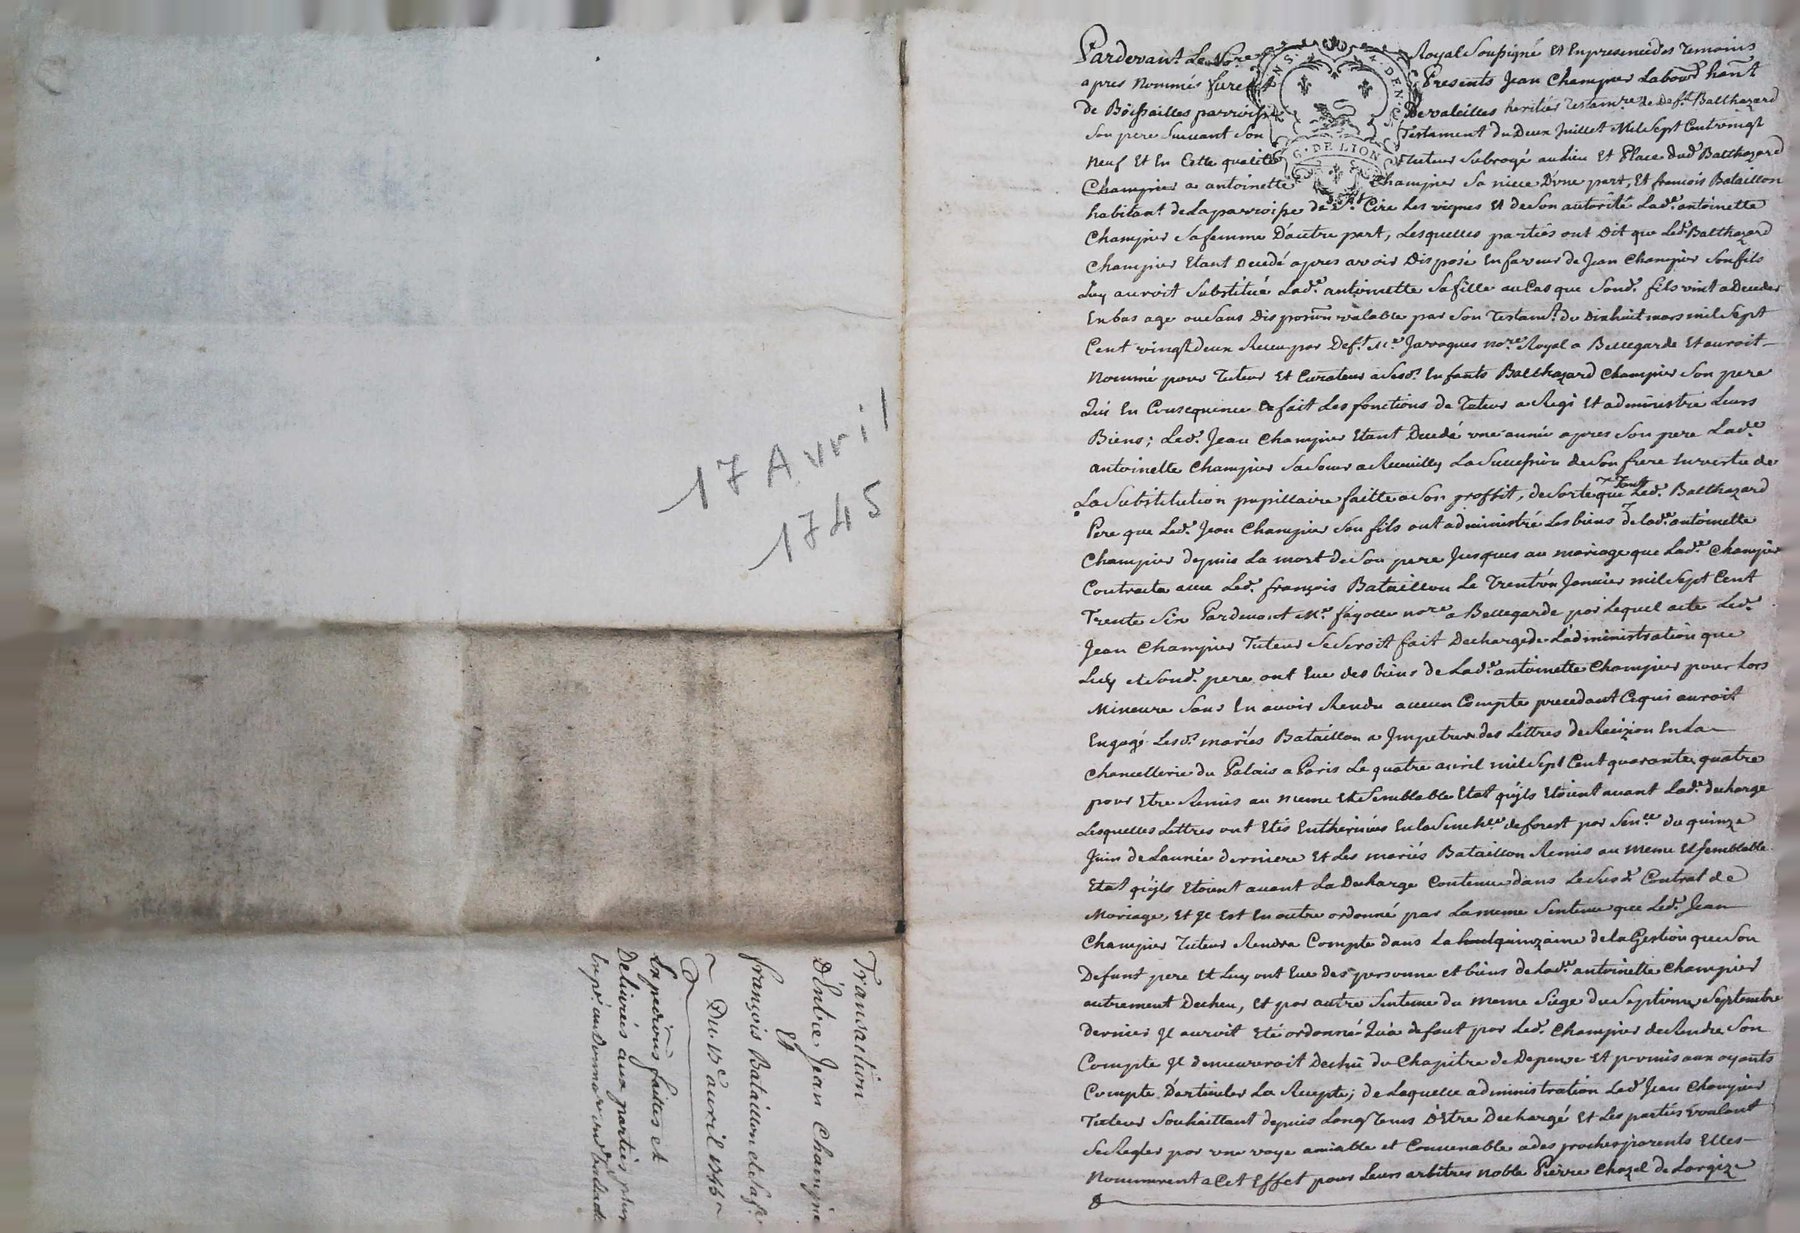 17 Avril
1745
Transaction
D'Entre Jean Champier
Et
françois Bataillon et sa fe.
Du 17e avril 1745
Expeditions faittes et
Delivrées aux parties plus
Pardevant Le No.re Royal Soussigné Et En presence des Temoins
apres Nommés furent Presents Jean Champier Labour.d ha.nt
de Boissailles parroisse De valeilles heritier Testam.re de Def.t Balthazard
Son pere Suivant Son Testament du Deux Juillet Mil Sept Cent vingt
Neuf Et En Cette qualité Tuteur Subrogé au lieu Et Place dud.t Balthazard
Champier a antoinette Champier Sa niece D'une part, Et francois Bataillon
habitant de La parroisse de St. Cire Les vignes Et de Son autorité Lad.e antoinette
Champier Sa femme D'autre part, Lesquelles parties ont Dit que Led.t Balthazard
Champier Etant Decedé apres avoir Disposé En faveur de Jean Champier Son fils
Luy auroit Substitué Lad.e antoinette Sa fille au Cas que Sond.t fils vint a Deceder
En bas age ou Sans Disposi.on valable par Son Testam.t du Dixhuit mars mil Sept
Cent vingt deux Receu par Def.t Me. Javogues no.re Royal a Bellegarde Et auroit
Nommé pour Tuteur Et Curateur a Sesd.t Enfants Balthazard Champier Son pere
Qui En Consequence fait Les fonctions de Tuteur a Regi Et administré Leurs
Biens; Led.t Jean Champier Etant Decedé une année apres Son pere Lad.e
antoinette Champier Sa Soeur a Recueilly La Succession de Son frere En vertu de
La Substitution pupillaire faitte a Son proffit, de Sorte que Tant Led.t Balthazard
Pere que Led.t Jean Champier Son fils ont administré Les biens de lad.e antoinette
Champier depuis La mort de Son pere Jusques au mariage que Lad.e Champier
Contracta avec Led.t françois Bataillon Le Trent'un Janvier mil Sept Cent
Trente Six Pardevant Me. fayolle no.re a Bellegarde par Lequel acte Led.t
Jean Champier Tuteur Se Seroit fait Decharger de L'administration que
Luy et Sond.t pere ont Eue des biens de Lad.e antoinette Champier pour Lors
Mineure Sans En avoir Rendu aucun Compte precedant Ce qui auroit
Engagé Lesd.t mariés Bataillon a Jmpetrer des Lettres de Recizion En La
Chancellerie du Palais a Paris Le quatre avril mil Sept Cent quarante quatre
pour Etre Remis au meme Et Semblable Etat qu'jls Etoient avant Lad.e decharge
Lesquelles Lettres ont Etés Entherinées En la Senech.ée de forest par Sen.ce du quinze
Juin de L'année derniere Et Les mariés Bataillon Remis au meme Et Semblable
Etat qu'jls Etoient avant La Decharge Contenue dans Le Susd.t Contrat de
Mariage, Et Jl Est En outre ordonné par La meme Sentence que Led.t Jean
Champier Tuteur Rendra Compte dans La quinzaine de la Gestion que Son
Defunt pere Et Luy ont Eue des personne et biens de Lad.e antoinette Champier
autrement Decheu, Et par autre Sentence du meme Siege du Septieme Septembre
Dernier Jl auroit Eté ordonné Qu'a defaut par Led.t Champier de Rendre Son
Compte Jl demeureroit Dechu du Chapitre de Depense Et permis aux oyants
Compte D'articuler La Recepte; de Laquelle administration Led.t Jean Champier
Tuteur Souhaittant depuis Long Tems D'Etre Dechargé Et Les parties voulant
Se Regler par une voye amiable et Convenable a des proches parents Elles
Nommerent a Cet Effet pour Leurs arbitres noble Pierre Chazel de Lorgize
G. DE LION